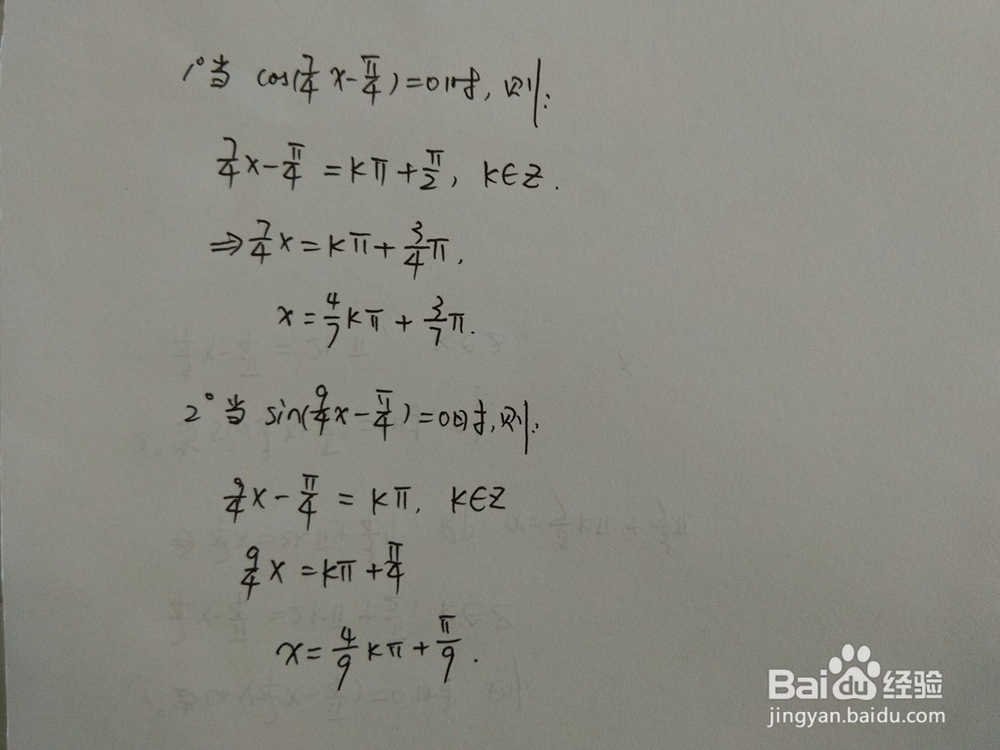 1° 当 cos(7/4 x - π/4) = 0时, 则:
7/4 x - π/4 = kπ + π/2, k∈Z.
⇒ 7/4 x = kπ + 3/4 π,
x = 4/7 kπ + 3/7 π.
2° 当 sin(9/4 x - π/4) = 0时, 则:
9/4 x - π/4 = kπ, k∈Z
9/4 x = kπ + π/4
x = 4/9 kπ + π/9.
Baidu经验
jingyan.baidu.com